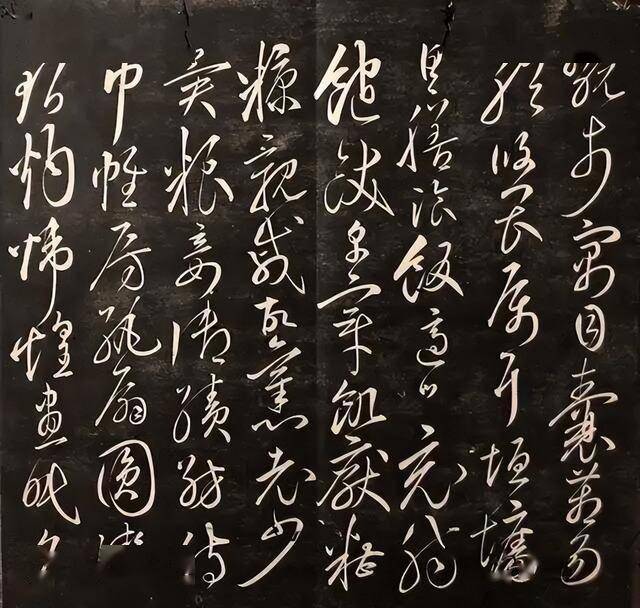 翫市寓目囊箱易
輶攸畏屬耳垣牆
具膳飡飯適口充腸
飽飫烹宰飢厭糟
糠親戚故舊老少
異糧妾御績紡侍
巾帷房紈扇圓潔
銀燭煒煌晝眠夕